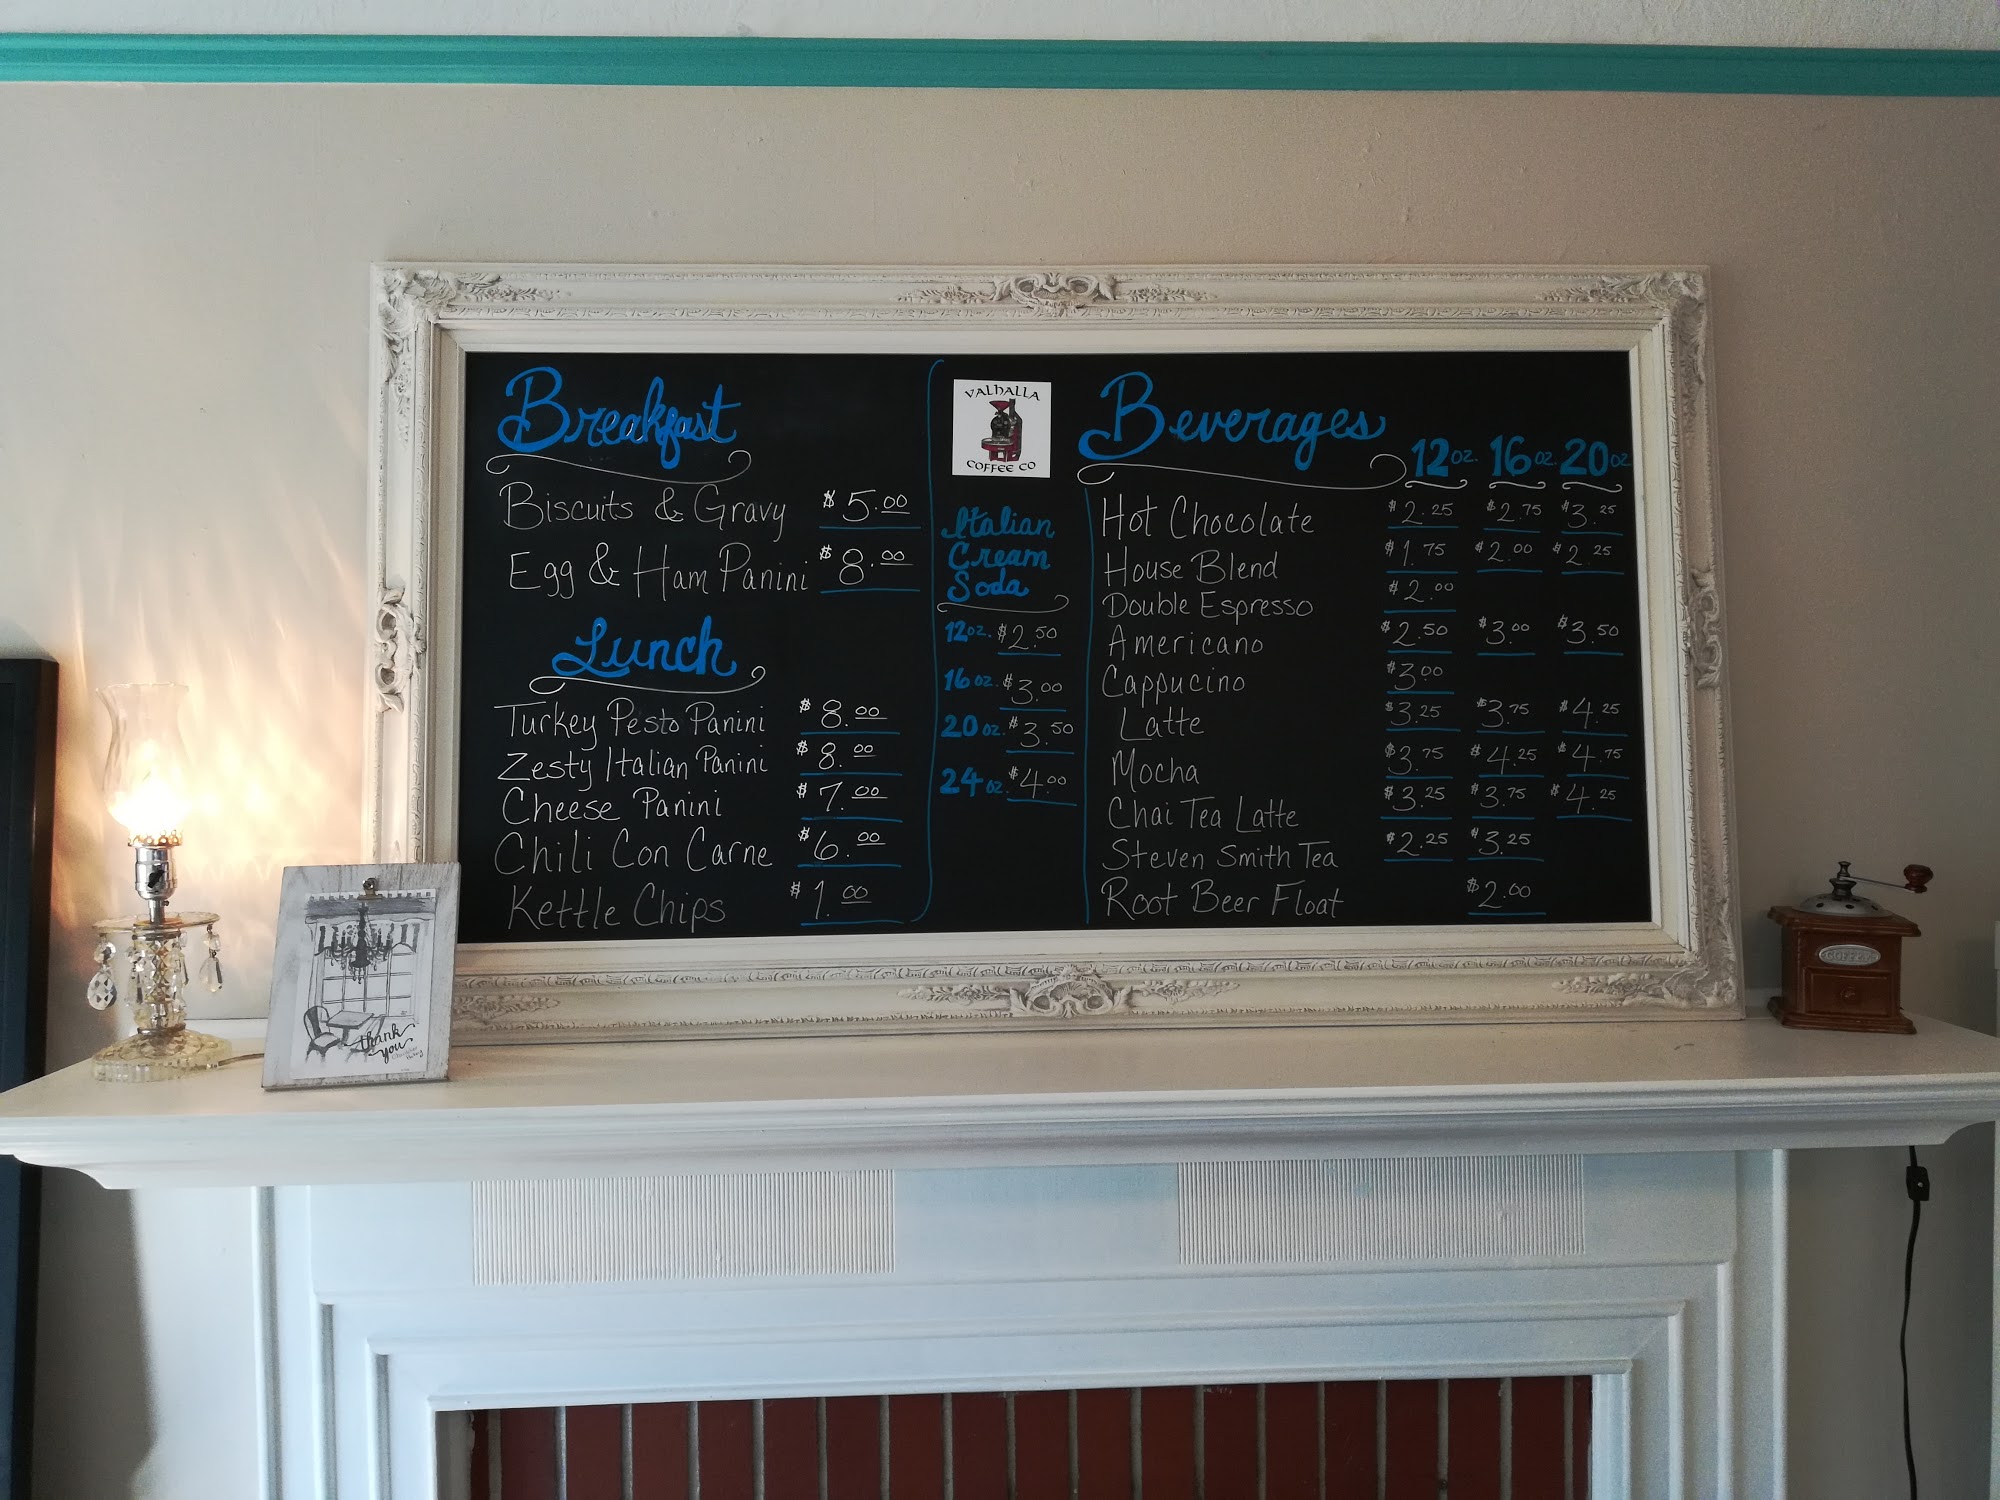 Breakfast
Biscuits & Gravy $5.00
Egg & Ham Panini $8.00
Lunch
Turkey Pesto Panini $8.00
Zesty Italian Panini $8.00
Cheese Panini $7.00
Chili Con Carne $6.00
Kettle Chips $1.00
VALHALLA
COFFEE CO
Italian
Cream
Soda
12oz. $2.50
16oz. $3.00
20oz. $3.50
24oz. $4.00
Beverages 12oz. 16oz. 20oz.
Hot Chocolate $2.25 $2.75 $3.25
House Blend $1.75 $2.00 $2.25
Double Espresso $2.00
Americano $2.50 $3.00 $3.50
Cappucino $3.00
Latte $3.25 $3.75 $4.25
Mocha $3.75 $4.25 $4.75
Chai Tea Latte $3.25 $3.75 $4.25
Steven Smith Tea $2.25 $3.25
Root Beer Float $2.00
thank
you
COFFEE